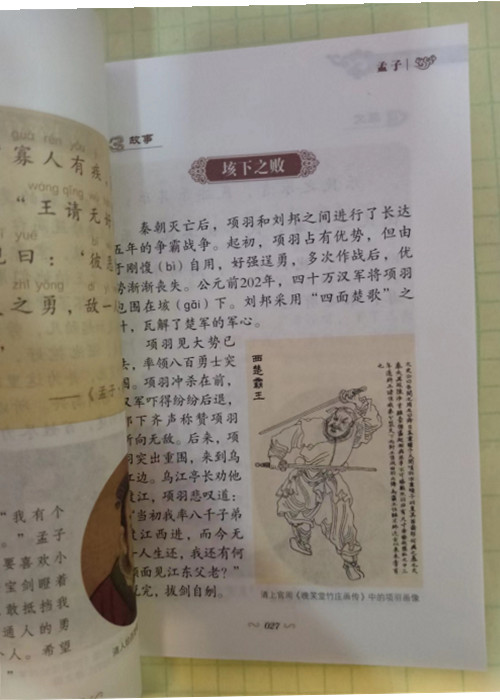 guǎ rén yǒu
寡人有疾，
wáng qǐng
“王请无好
yuē
曰：‘彼
zhī yǒng
之勇，敌一
——《孟子
“我有个
。”孟子
要喜欢小
宝剑瞪着
敢抵挡我
通人的勇
个人。希望
”
孟子
故事
垓下之败
秦朝灭亡后，项羽和刘邦之间进行了长达
五年的争霸战争。起初，项羽占有优势，但由
于刚愎（bì）自用，好强逞勇，多次作战后，优
势渐渐丧失。公元前202年，四十万汉军将项羽
包围在垓（gāi）下。刘邦采用“四面楚歌”之
计，瓦解了楚军的军心。
项羽见大势已
去，率领八百勇士突
围。项羽冲杀在前，
汉军吓得纷纷后退，
部下齐声称赞项羽
所向无敌。后来，项
羽突出重围，来到乌
江边。乌江亭长劝他
渡江，项羽悲叹道：
“当初我率八千子弟
渡江西进，而今无
一人生还，我还有何
颜面见江东父老？”
说完，拔剑自刎。
西楚霸王
清上官周《晚笑堂竹庄画传》中的项羽画像
027